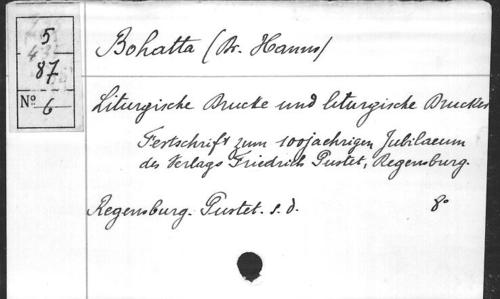 5
87
Nº 6
Bohatta (Dr. Hanns)
Liturgische Drucke und liturgische Drucker
Festschrift zum 100jaehrigen Jubilaeum
des Verlags Friedrich Pustet, Regensburg.
Regensburg. Pustet. s. d. 8º